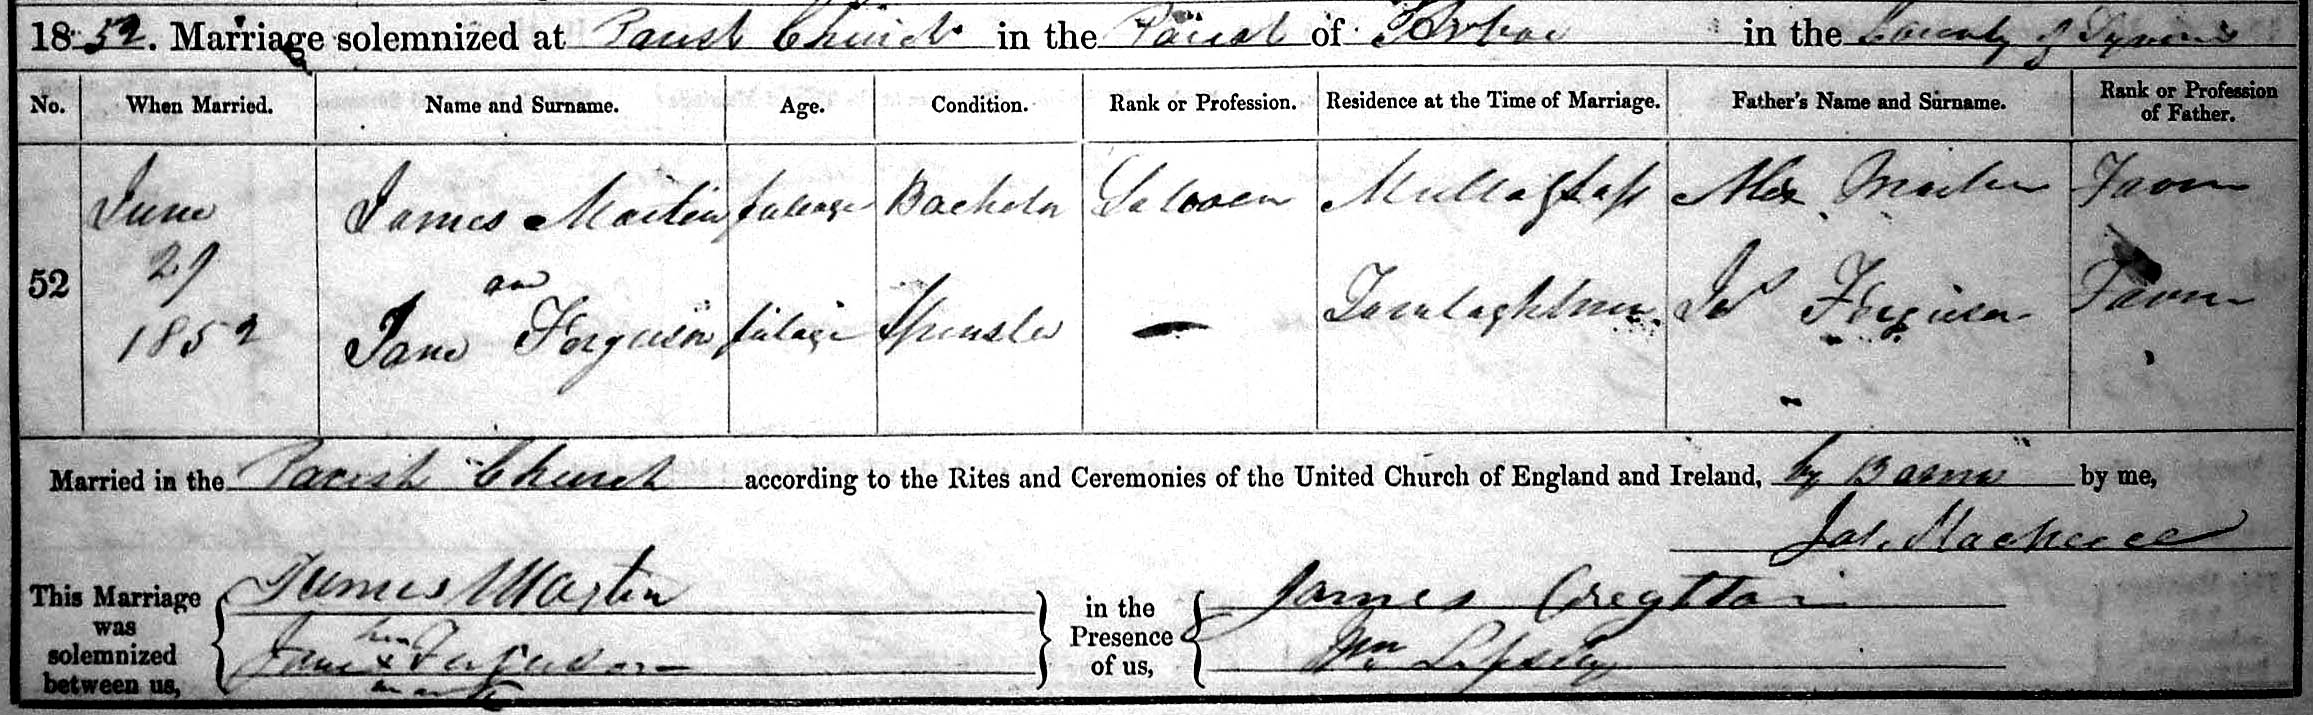 1852. Marriage solemnized at Parish Church in the Parish of Arboe in the County of Tyrone
No. When Married. Name and Surname. Age. Condition. Rank or Profession. Residence at the Time of Marriage. Father's Name and Surname. Rank or Profession of Father.
June James Martin fullage Bachelor Mullaghtass Alex Martin Farmer
52 29 an
1852 Jane Ferguson fullage Spinster — Js Ferguson Farmer
Married in the Parish Church according to the Rites and Ceremonies of the United Church of England and Ireland, by Banns by me,
This Marriage was solemnized between us, James Martin in the Presence of us, James
Jane Ferguson Wm
her x mark